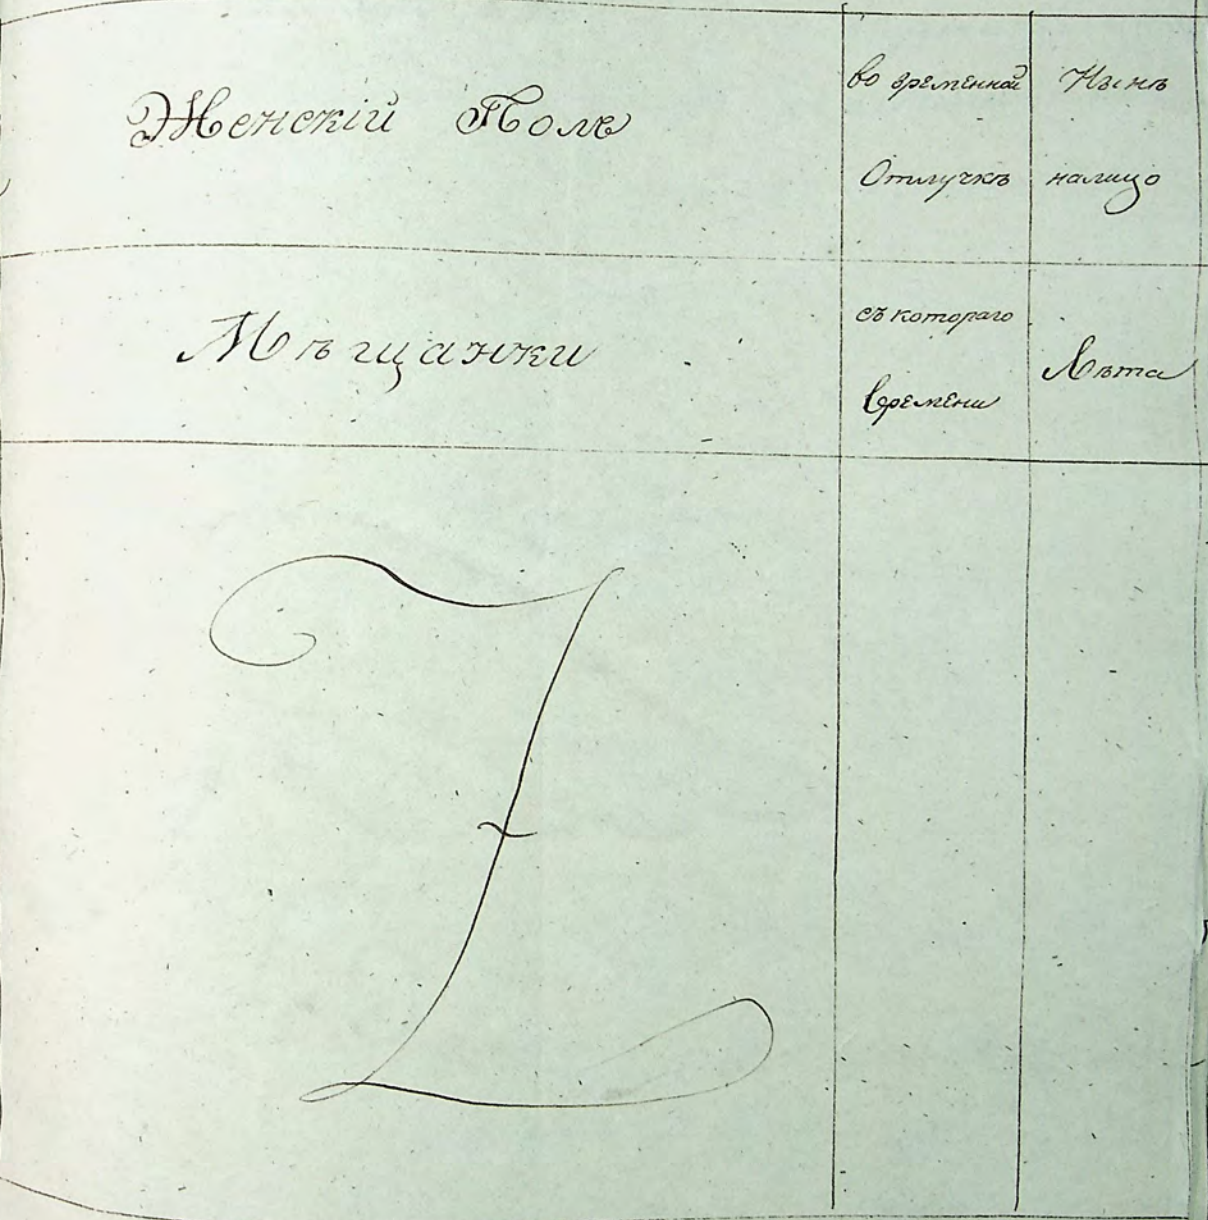 Женскій Полъ
во временной
Отлучкѣ
Нынѣ
налицо
Мѣщанки
съ котораго
времени
Лѣта